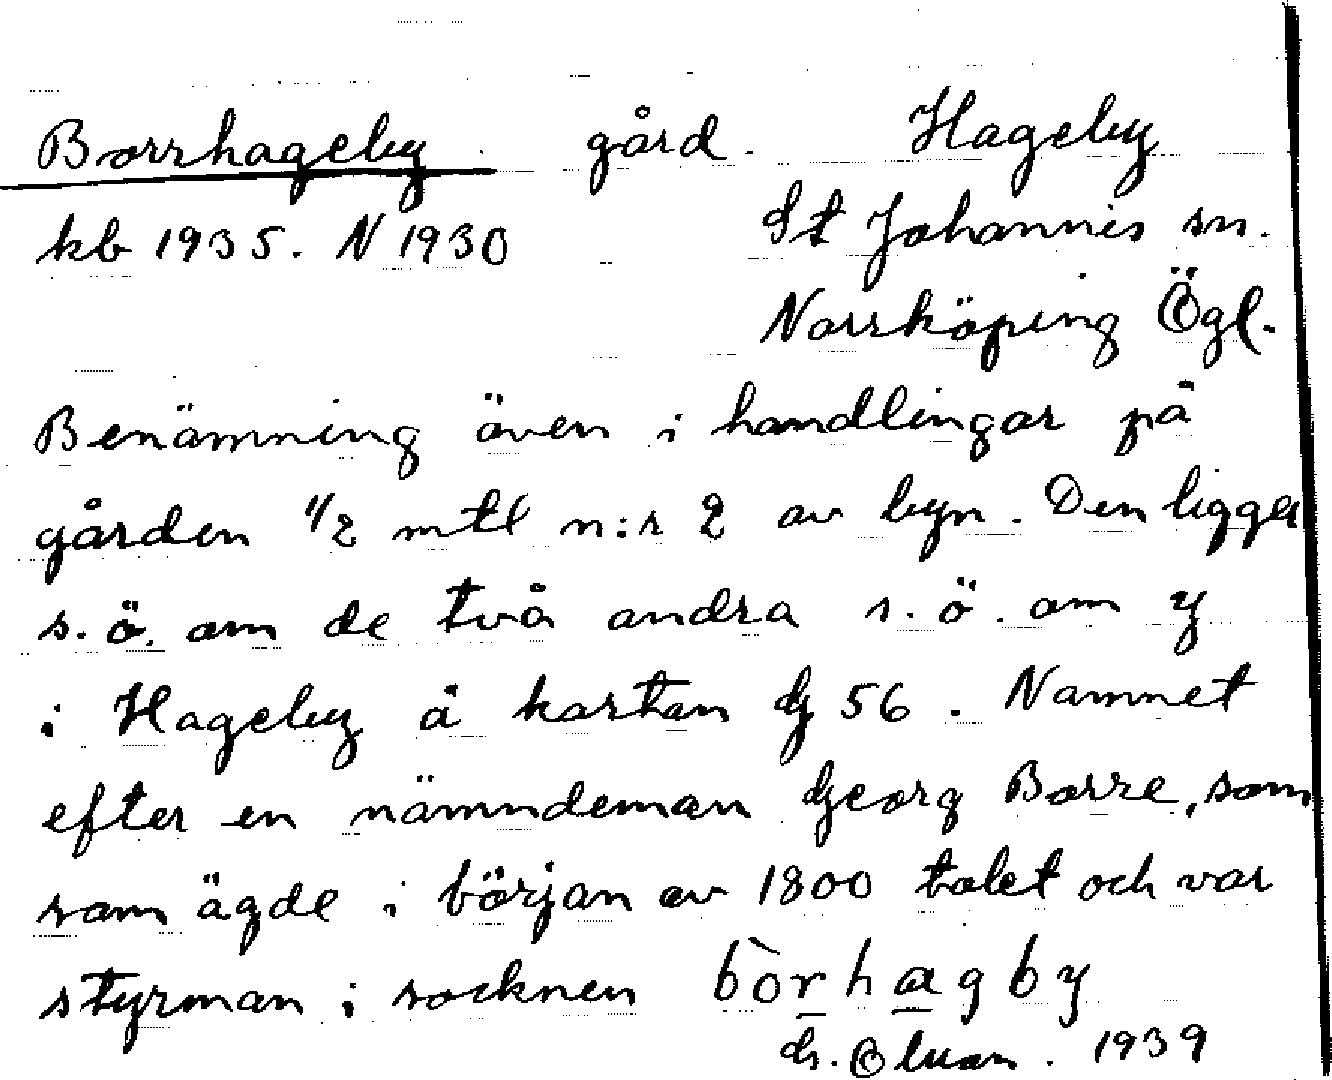 Borrhageby. gård. Hageby
kb 1935. N 1930 St Johannis sn.
Norrköping Ögl.
Benämning även i handlingar på
gården 1/2 mtl n:r 2 av byn. Den ligger
s.ö. om de två andra s.ö. om y
i Hageby å kartan G 56. Namnet
efter en nämndeman Georg Borre, som
som ägde i början av 1800 talet och var
styrman i socknen bòrhagby
1939